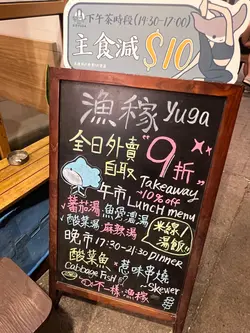 下午茶時段(14:30-17:00)
主食減$10
漁稼 yuga
全日外賣
自取
"9折"
Takeaway
10% off
午市 LUNCH menu
蕃茄湯 魚骨濃湯
酸菜湯 麻辣湯
米線
湯飯!!
晚市 17:30-21:30 DINNER
酸菜魚 × 惹味串燒
Cabbage Fish
skewer
不一樣漁稼